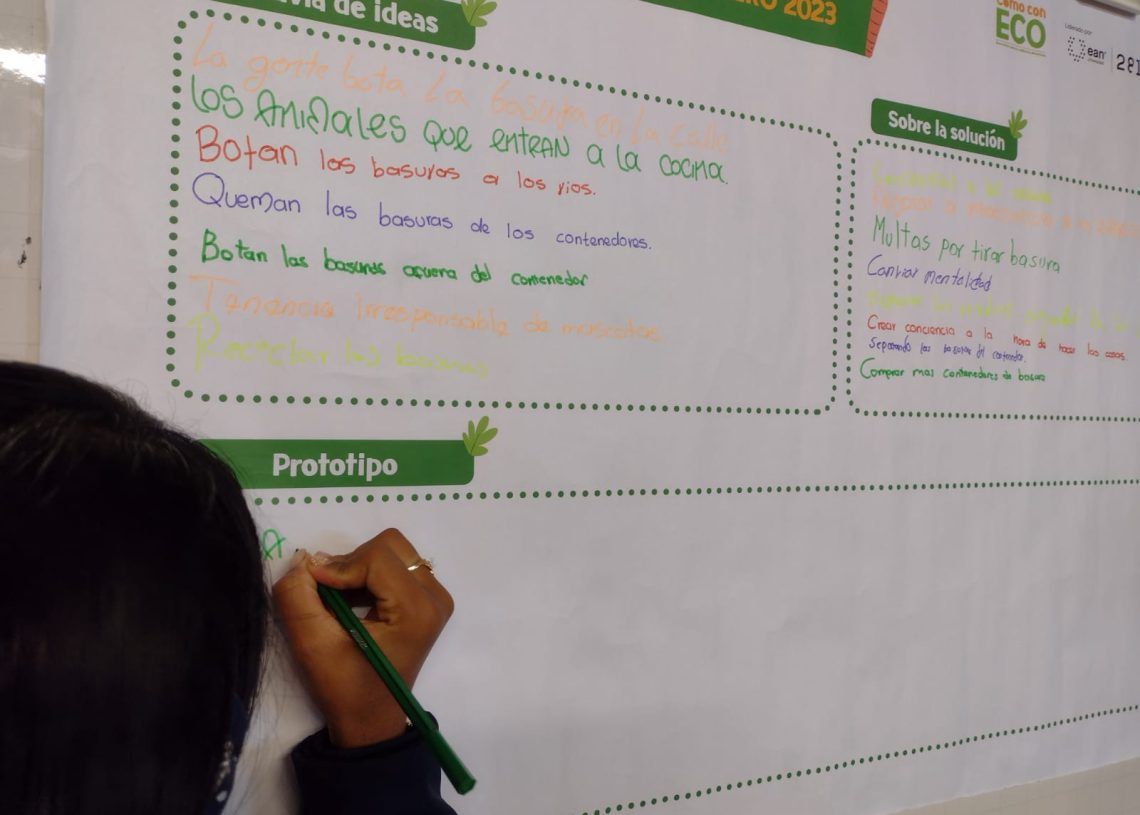 de ideas
2023
como con
ECO
Liderado por
ean
La gente bota la basura en la calle
los Animales que entran a la cocina.
Botan las basuras a los rios.
Queman las basuras de los contenedores.
Botan las basuras afuera del contenedor
Tenencia Irresponsable de mascotas
las basuras
Prototipo
A
Sobre la solución
Multas por tirar basura
Canviar mentalidad
Crear conciencia a la hora de hacer las cosas.
Separando las basuras del contenedor.
Comprar mas contenedores de basura